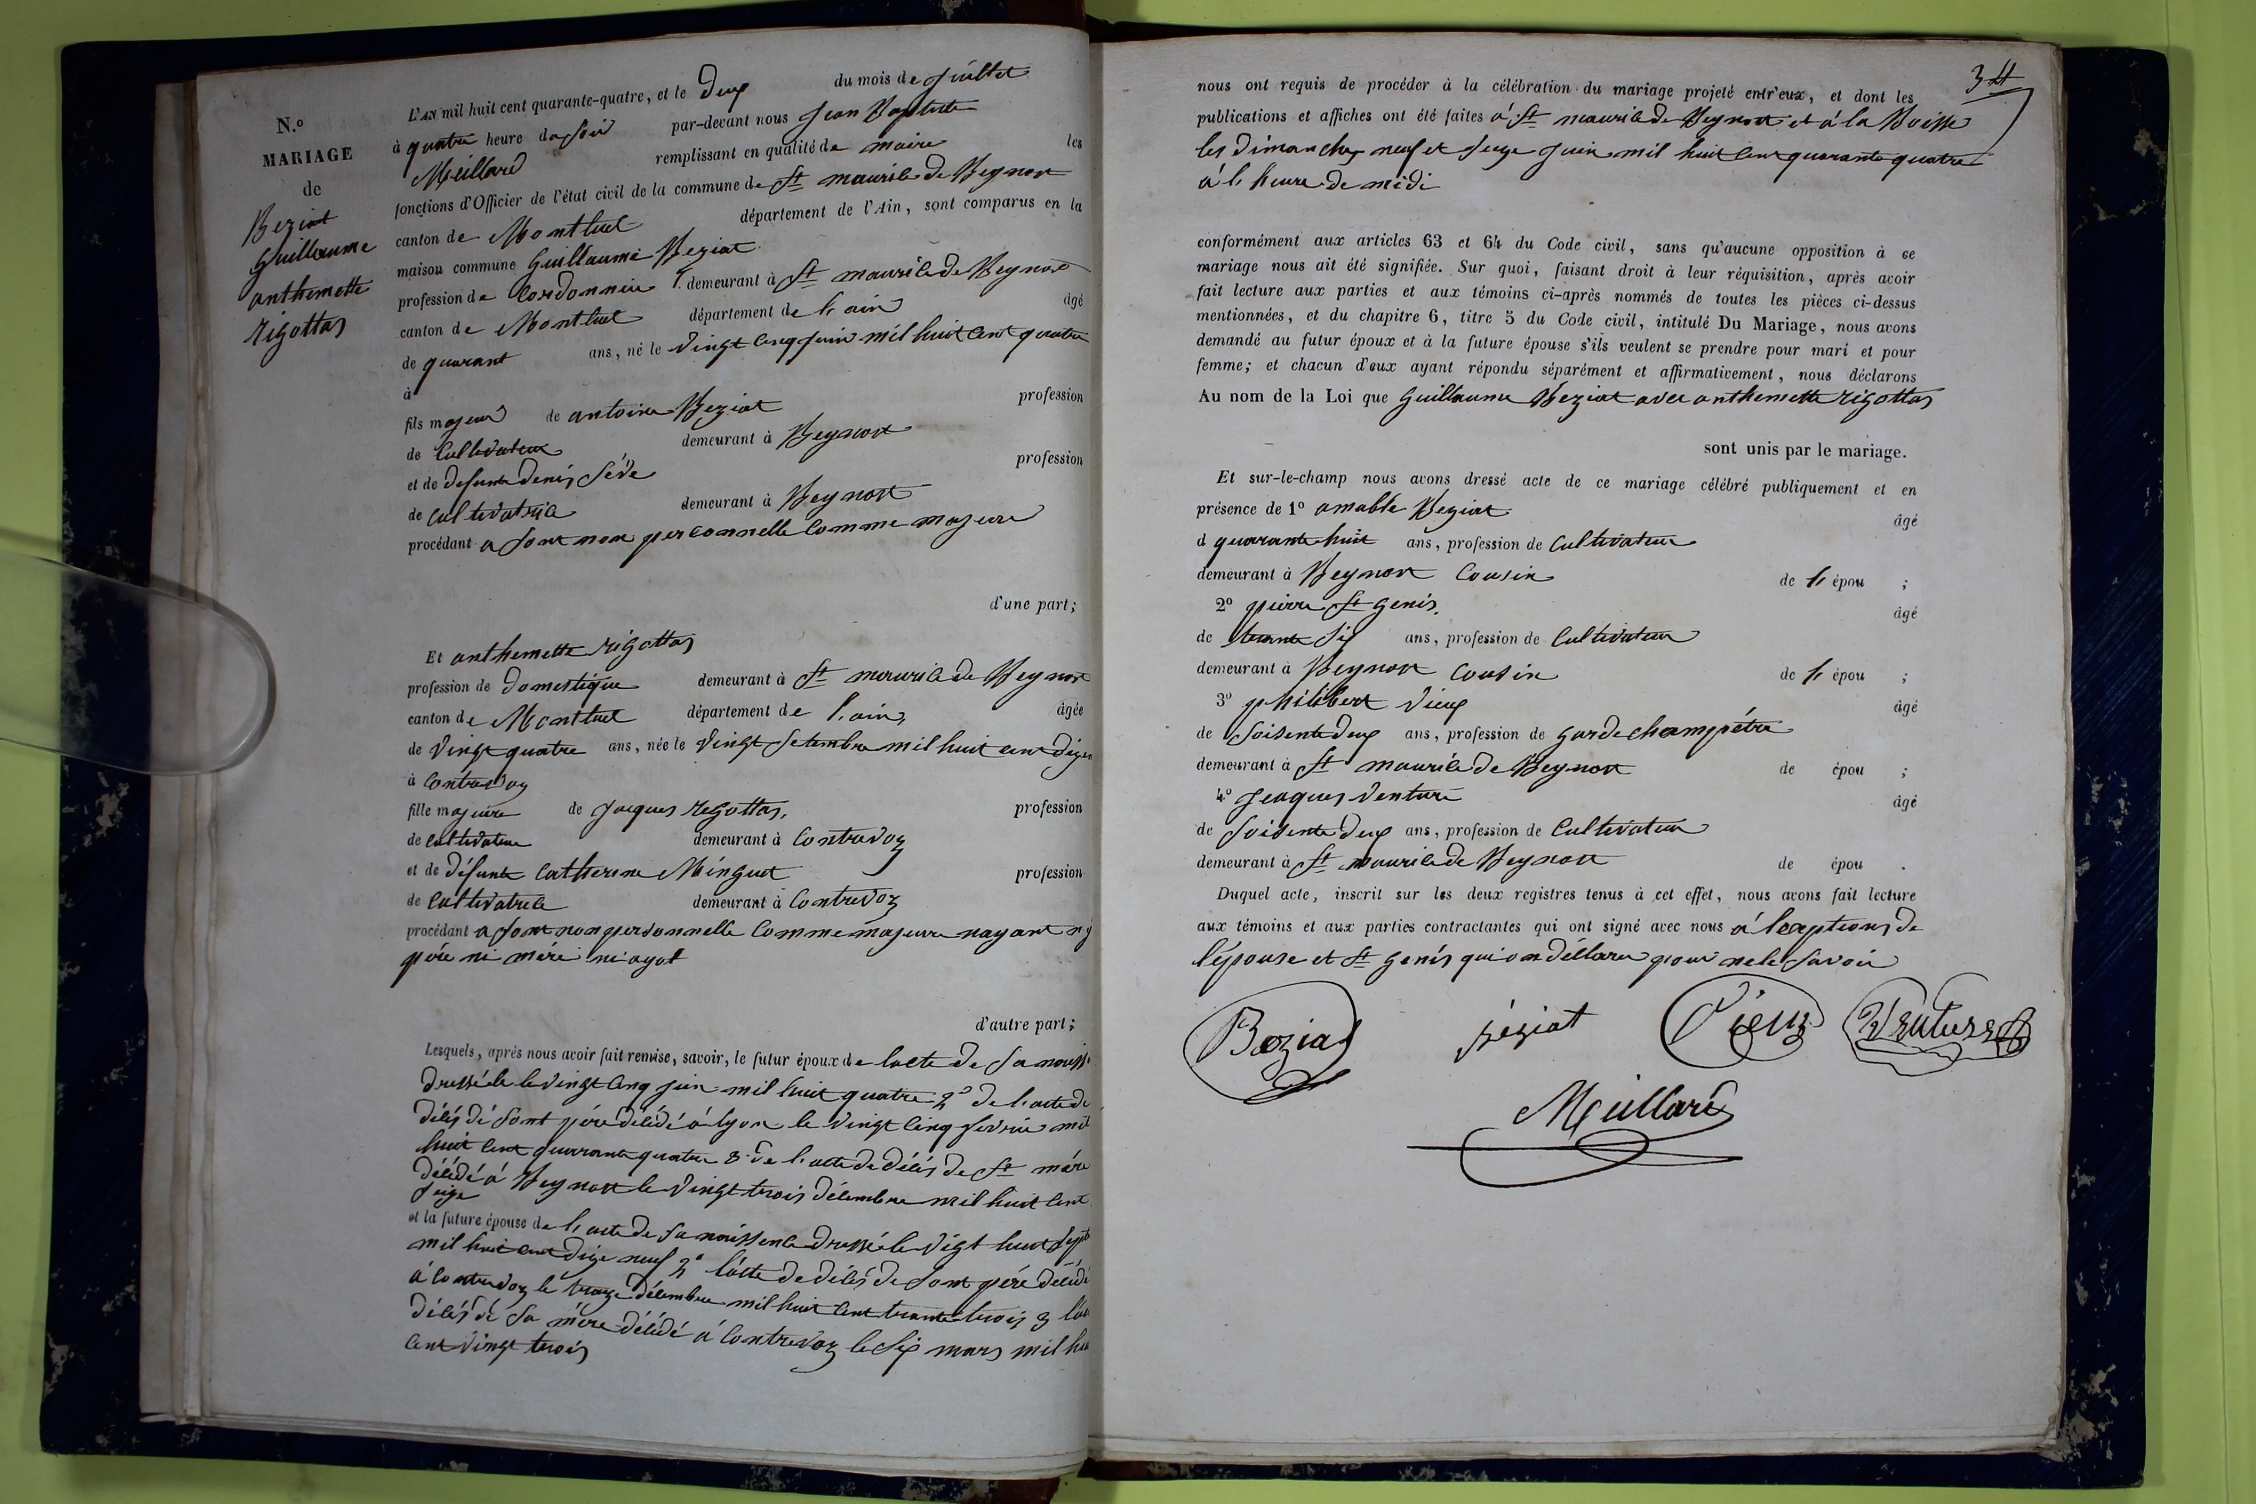 N.º
MARIAGE
de
Beziat
Guillaume
anthemette
rigottas
L'AN mil huit cent quarante-quatre, et le deux du mois de juillet
à quatre heure du soir par-devant nous Jean Baptiste
Meillard remplissant en qualité de maire les
fonctions d'Officier de l'état civil de la commune de St maurice de Beynost
canton de Montluel département de l'Ain, sont comparus en la
maison commune Guillaume Beziat
profession de Cordonnier demeurant à St maurice de Beynost
canton de Montluel département de l'ain âgé
de quarant ans, né le vingt cinq juin mil huit cent quatre
à
fils majeur de antoine Beziat profession
de Cultivateur demeurant à Beynost
et de defunte denis séve profession
de Cultivatrice demeurant à Beynost
procédant a sont nom personnelle comme majeure
d'une part;
Et anthemette rigottas
profession de domestique demeurant à St maurice de Beynost
canton de Montluel département de l'ain, âgée
de vingt quatre ans, née le vingt setembre mil huit cent dizen
à Contrevoz
fille majeure de jacques regottas, profession
de cultivateur demeurant à Contrevoz
et de défunte Catherine Minguet profession
de Cultivatrice demeurant à Contrevoz
procédant a sont non personnelle comme majeure nayant ny
pére ni mére ni ayol
d'autre part;
Lesquels, après nous avoir fait remise, savoir, le futur époux de lacte de sa naiss
dressée le vingt cinq juin mil huit quatre 2º de l'acte de
décés dé sont pére décédé á lyon le vingt cinq fevrié mil
huit cent quarante quatre 3º de l'acte de décés de St mére
décédé á Beynost le vingt trois décembre mil huit cent
seize
et la future épouse de l'acte de sa naissence dressé le vigt huit sept
mil huit cent dize neuf 2º lácte de décés de sont pére décédé
á Contrevoz le traize décembre mil huit cent trente trois 3 lác
décés dé sa mére décédé á Contrevoz le six mars mil hu
cent vingt trois
34
nous ont requis de procéder à la célébration du mariage projeté entr'eux, et dont les
publications et affiches ont été faites á St maurice de Beynost et á la Boisse
les dimanches neuf et seize juin mil huit cent quarante quatre
á l'heure de midi
conformément aux articles 63 et 64 du Code civil, sans qu'aucune opposition à ce
mariage nous ait été signifiée. Sur quoi, faisant droit à leur réquisition, après avoir
fait lecture aux parties et aux témoins ci-après nommés de toutes les pièces ci-dessus
mentionnées, et du chapitre 6, titre 5 du Code civil, intitulé Du Mariage, nous avons
demandé au futur époux et à la future épouse s'ils veulent se prendre pour mari et pour
femme; et chacun d'eux ayant répondu séparément et affirmativement, nous déclarons
Au nom de la Loi que Guillaume Beziat avec anthemette rigottas
sont unis par le mariage.
Et sur-le-champ nous avons dressé acte de ce mariage célébré publiquement et en
présence de 1º amable Beziat âgé
d quarante huit ans, profession de Cultivateur
demeurant à Beynost Cousin de l' épou ;
2º pierre St genis, âgé
de trente six ans, profession de Cultivateur
demeurant à Beynost Cousin de l' épou ;
3º philibert vieux âgé
de soisente deux ans, profession de garde champétre
demeurant à St maurice de Beynost de épou ;
4º jeaques venture âgé
de soisente deux ans, profession de Cultivateur
demeurant à St maurice de Beynost de épou .
Duquel acte, inscrit sur les deux registres tenus à cet effet, nous avons fait lecture
aux témoins et aux parties contractantes qui ont signé avec nous á lexptions de
l'épouse et St genis qui on déllaru pour ne le savoir
Beziat béziat Vieux Venture
Meillard